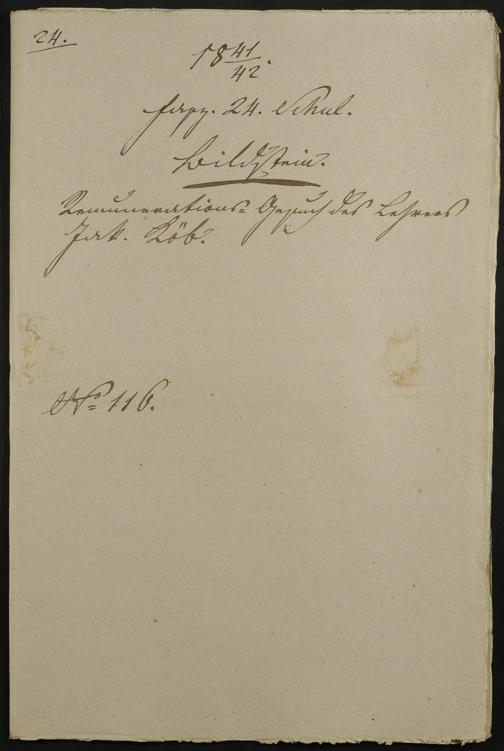 24.
18 41/42.
Fasz. 24. Schul.
Bildstein.
Remunerations= Gesuch des Lehrers
Jak. Köb.
No 116.